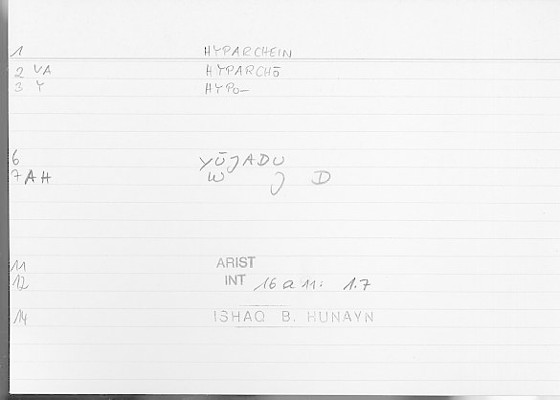 1 HYPARCHEIN
2 VA HYPARCHŌ
3 Y HYPO-
6 YŪJADU
7 AH W J D
11 ARIST
12 INT 16 a 11: 1.7
14 ISHAQ B. HUNAYN